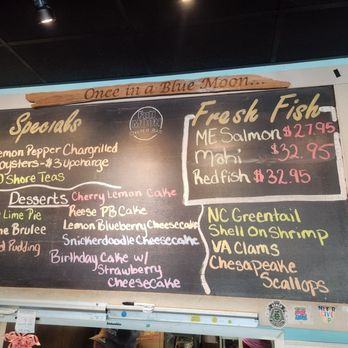 Once in a Blue Moon...
Specials
emon Pepper Chargrilled
ysters-$3 upcharge
Shore Teas
Desserts
Cherry Lemon Cake
Lime Pie
Reese PB Cake
e Brulee
Lemon Blueberry Cheesecake
d Pudding
Snickerdoodle Cheesecake
Birthday Cake w/
Strawberry
Cheesecake
Fresh Fish
ME Salmon $27.95
Mahi $32.95
Redfish $32.95
NC Greentail
Shell On Shrimp
VA Clams
Chesapeake
Scallops